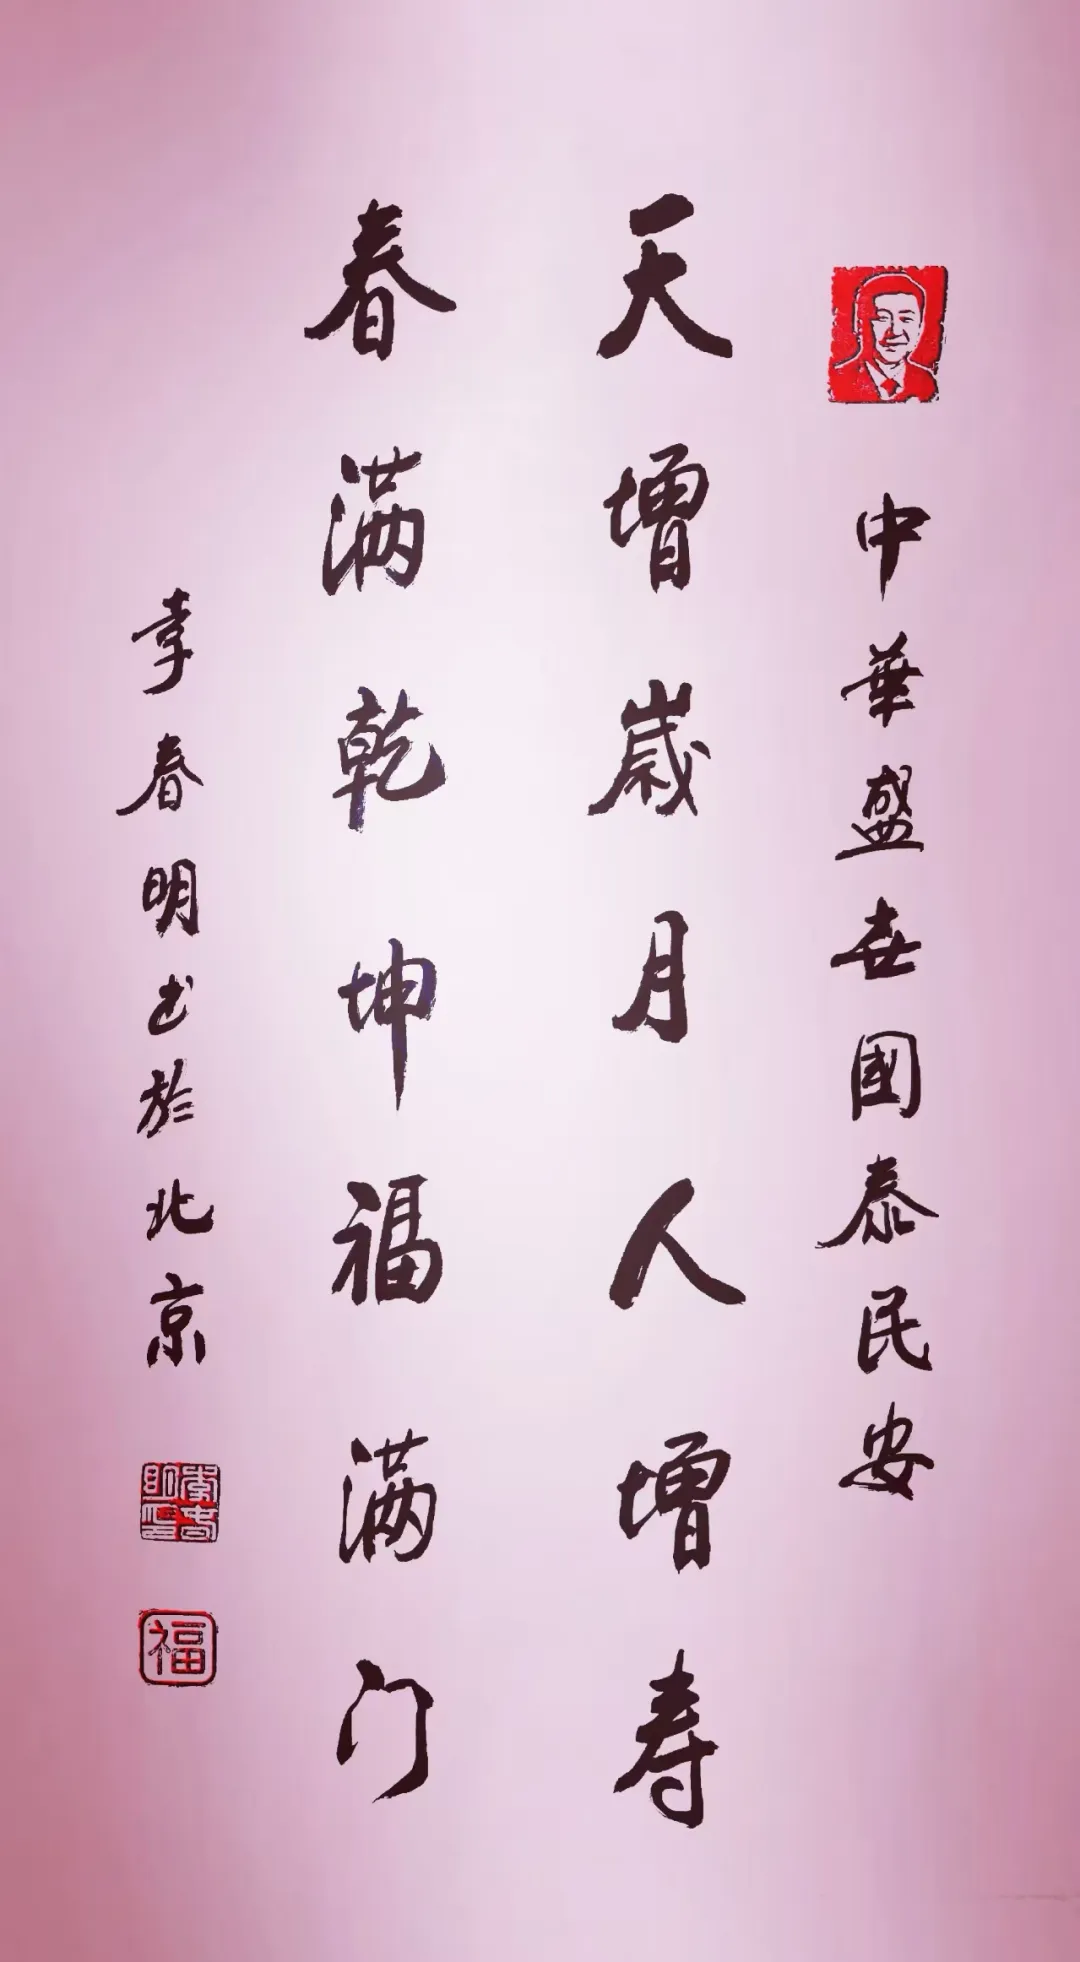 中華盛世國泰民安
天增歲月人增寿
春满乾坤福满门
李春明书於北京
李春明印
福